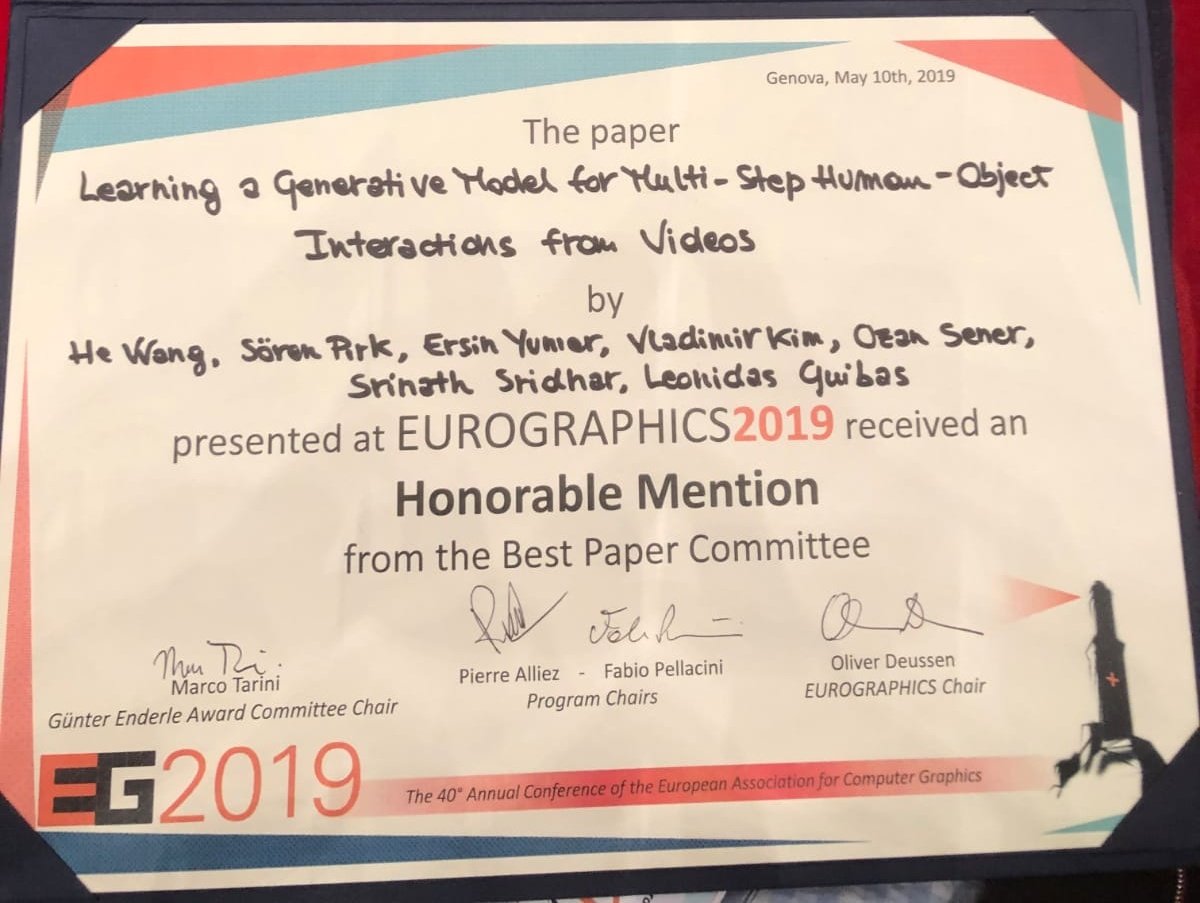 Genova, May 10th, 2019
The paper
Learning a Generative Model for Multi-Step Human-Object
Interactions from Videos
by
He Wang, Sören Pirk, Ersin Yumer, Vladimir Kim, Ozan Sener,
Srinath Sridhar, Leonidas Guibas
presented at EUROGRAPHICS2019 received an
Honorable Mention
from the Best Paper Committee
Marco Tarini
Günter Enderle Award Committee Chair
Pierre Alliez - Fabio Pellacini
Program Chairs
Oliver Deussen
EUROGRAPHICS Chair
EG2019
The 40° Annual Conference of the European Association for Computer Graphics